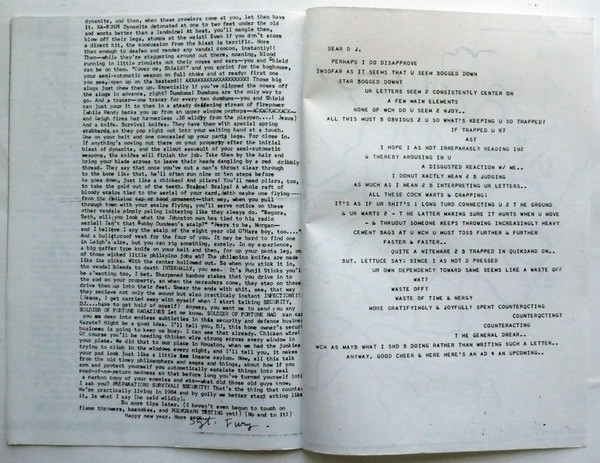 dynamite, and then, when these prowlers come at you, let them have
it. KA-WUNGM Dynamite detonated at one to two feet under the old
and works better than a landmine! At best, you'll mangle them,
blow off their legs, stumps at the waist! Even if you don't score
a direct hit, the concussion from the blast is terrific. More
than enough to deafen and render any vandal sooooo, instantly!!
Then--while they're staggering around out there, moaning, blood
running in little rivulets out their noses and ears--you and Shield
can be on them. "Cover me, Shield!" and you sprint for the boghouse,
your semi-automatic weapon on full choke and at ready! First one
you see, open up on the bastard!!! Those big
slugs just chew them up. Especially if you've clipped the noses off
the slugs in advance, right? Dumdums! Dumdums are the only way to
go. And a tracer--one tracer for every ten dumdums--you and Shield
can just pour it to them in a steady deadening stream of firepower
and leigh fires her harmless .38 wildly from the playpen...! Jesus)
And a knife. Survival knives. They have them with special spring
scabbards so they pop right out into your waiting hand at a touch.
One on your belt and one concealed up your pants legs. For close in.
If anything's moving out there on your property after the initial
blast of dynamite, and the silent assault of your semi-automatic
weapons, the knives will finish the job. Take them by the hair and
bring your blade across to leave their heads dangling by a red dribbly
thread. They say that once you've cut a man's throat clear through
to the bone like that, he'll often run nine or ten steps before
he goes down, just like a chicken! And pliars! You'll need pliars, too,
to take the gold out of the teeth. Scalps! Scalps! A whole raft of
bloody scalps tied to the aerial of your card, with maybe one flying
from the radiator cap or hood ornament--that way, when you pull
through town with your scalps flying, you'll serve notice on these
other vandals pimply paling loitering like they always do. "Begora,
Seth, will you look what the Johnston man has tied to his radio
aerial! Isn't that "Bobby Dumdum's scalp" "Fears to be, Morgan--
and I believe I spy the scalp of the eight year old O'Hare boy, too...."
And a bulletproof vest for the four of you. It may be hard to find one
in Leigh's size, but you can rig something, surely. In my experience,
a big gaffer type knife on your belt and then, for up your pants leg, on
of those wicked little philapino jobs eh? The philapino knives are made
like ice picks. With the center hollowed out. So when you stick it in,
the vandal bleeds to death INTERNALLY, you see. It's Punji Sticks you'll
be wanting, too, I bet. Sharpened bamboo stakes that you drive in to
the sod on your property, so when the marauders come, they step on these
drive them up into their feet. Smear the ends with shit, see, that way
they recieve not only the wound but also practicaly instant INFECTION!!
(Jesus, I get carried away with myself when I start talking SECURITY,
DJ....have to get hold of myself! Anyway, you want me to send you any
SOLDIER OF FORTUNE MAGAZINES let me know. SOLDIER OF FORTUNE MAG can
you as deep into endless subtleties in this security and defense busines
Karate? Might be a good idea. I'll tell you, DJ, this home owner's securit
business is going to keep us busy. I can see that already. Chicken wire!
Of course you'll be needing chicken wire strung across every window in
your place. We did that to our place in Houston, when we had the junkies
trying to climb in the windows every night, and I'll tell you, it makes
your pad look just like a little insane asylum. Now, all this talk
from the old timey philosophers and sages and things, about how if you
arm and protect yourself you automatically escalate things into real
read-of-a-return madness so that before long you've turned yourself into
a carbon copy of your enemies and etc--what did those old guys know,
I ask you? PREPARATION! SURVIVAL! SECURITY! That's the thing that counts.
We're practically living in 1984 and by golly we better start acting like
it, is what I say (he said wildly).
So more tips later. (I haven't even begun to touch on
flame throwers, bazookas, and POLYGRAPH TESTING yet!) (No end to it!)
Happy new year. More soon,
Sgt. Fury
DEAR D J,
PERHAPS I DO DISAPPROVE
INSOFAR AS IT SEEMS THAT U SEEM BOGGED DOWN
STAR BOGGED DOWN?
UR LETTERS SEEM 2 CONSISTENTLY CENTER ON
A FEW MAIN ELEMENTS
NONE OF WCH DO U SEEM 2 NJOY..
ALL THIS MUST B OBVIOUS 2 U SO WHAT'S KEEPING U SO TRAPPED?
IF TRAPPED U R?
AS?
I HOPE I AS NOT IRREPARABLY READING IN2
& THEREBY AROUSING IN U
A DISGUSTED REACTION W/ ME..
I DONUT XACTLY MEAN 2 B JUDGING
AS MUCH AS I MEAN 2 BS INTERPRETING UR LETTERS..
ALL THESE COCK WARTS & CRAPPING!
IT'S AS IF UR SHIT'S 1 LONG TURD CONNECTING U 2 THE GROUND
& UR WARTS 2 - THE LATTER MAKING SURE IT HURTS WHEN U MOVE
- & THRUOUT SOMEONE KEEPS THROWING INCREASINGLY HEAVY
CEMENT BAGS AT U WCH U MUST TOSS FURTHER & FURTHER
FASTER & FASTER..
QUITE A NITEMARE 2 B TRAPPED IN QUIKSAND ON..
BUT, LETTUCE SAY: SINCE I AS NOT D PRESSED
UR OWN DEPENDENCY TOWARD SAME SEEMS LIKE A WASTE OFF
WAT?
WASTE OFF?
WASTE OF TIME & NERGY
MORE GRATIFYINGLY & JOYFULLY SPENT COUNTERQCTING
COUNTERQCTINGT
COUNTERACTING
T HE GENERAL DREAR..
WCH AS MAYB WHAT I SHD B DOING RATHER THAN WRITING SUCH A LETTER..
ANYWAY, GOOD CHEER & HERE HERE'S AN AD 4 AN UPCOMING..